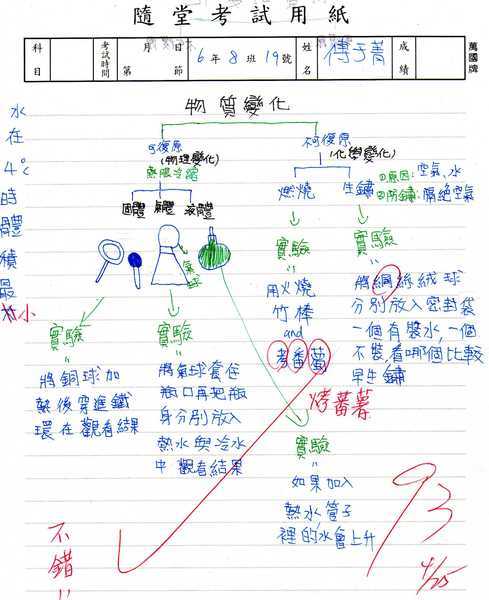 隨堂考試用紙
科目
考試時間
月 日
第 節
6年8班19號
姓名
成績
萬國牌
物質變化
可復原
(物理變化)
熱脹冷縮
固體 氣體 液體
氣球
實驗
將銅球加
熱後穿進鐵
環在觀看結果
實驗
將氣球套住
瓶口再把瓶
身分別放入
熱水與冷水
中觀看結果
(化學變化)
燃燒
實驗
用火燒
竹棒
and
生鏽
①原因:空氣、水
②防鏽:隔絕空氣
實驗
將鋼絲絨球
分別放入密封袋
一個有裝水,一個
不裝,看哪個比較
早生鏽
烤蕃薯
實驗
如果加入
熱水,管子
裡的水會上升
水在4℃時體積最小
不錯
93
4/25